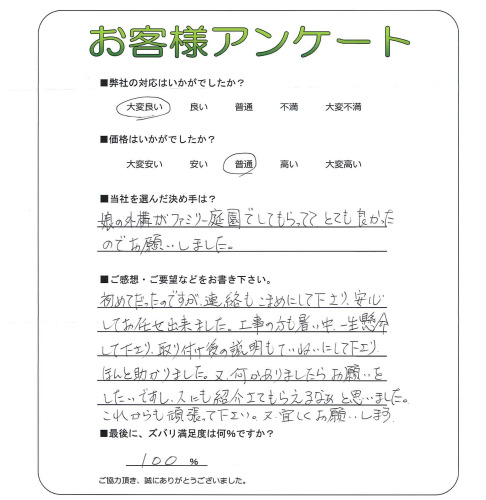 お客様アンケート
■弊社の対応はいかがでしたか?
大変良い 良い 普通 不満 大変不満
■価格はいかがでしたか?
大変安い 安い 普通 高い 大変高い
■当社を選んだ決め手は?
娘の外構がファミリー庭園でしてもらってて とても良かった
のでお願いしました。
■ご感想・ご要望などをお書き下さい。
初めてだったのですが、連絡もこまめにして下さり、安心
してお任せ出来ました。工事の方も暑い中、一生懸命
して下さり、取り付け後の説明もていねいにして下さり
ほんと助かりました。又、何かありましたらお願いを
したいですし、人にも紹介してもらえるなぁと思いました。
これからも頑張って下さい。又、宜しくお願いします。
■最後に、ズバリ満足度は何%ですか?
100 %
ご協力頂き、誠にありがとうございました。